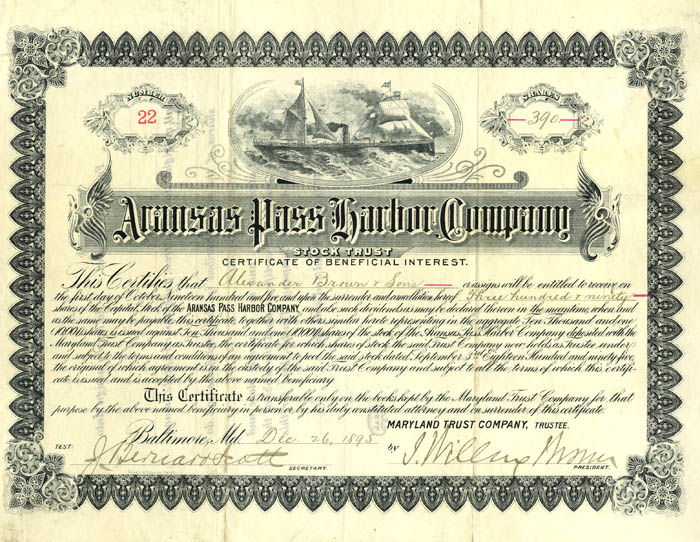 NUMBER
22
SHARES
390
Aransas Pass Harbor Company
STOCK TRUST
CERTIFICATE OF BENEFICIAL INTEREST.
This Certifies that Alexander Brown & Sons or assigns will be entitled to receive on
the first day of October, Nineteen hundred and five and upon the surrender and cancellation hereof Three hundred & ninety
shares of the Capital Stock of the ARANSAS PASS HARBOR COMPANY, and also such dividends as may be declared thereon in the meantime, when and
as the same may be payable; this certificate, together with others similar hereto representing in the aggregate Ten Thousand and one
(10,001) shares is issued against Ten Thousand and one (10,001) shares of the stock of the Aransas Pass Harbor Company, deposited with the
Maryland Trust Company as Trustee, the certificate for which shares of stock the said Trust Company now holds as Trustee under
and subject to the terms and conditions of an agreement to pool the said stock dated September 3rd Eighteen Hundred and ninety five,
the original of which agreement is in the custody of the said Trust Company and subject to all the terms of which this certifi-
cate is issued and is accepted by the above named beneficiary.
This Certificate is transferable only on the books kept by the Maryland Trust Company for that
purpose by the above named beneficiary in person or by his duly constituted attorney and on surrender of this certificate.
MARYLAND TRUST COMPANY, TRUSTEE.
Baltimore, Md. Dec. 26, 1895
TEST: J. Bernard Scott
by J. Willcox Brown
SECRETARY.
PRESIDENT.